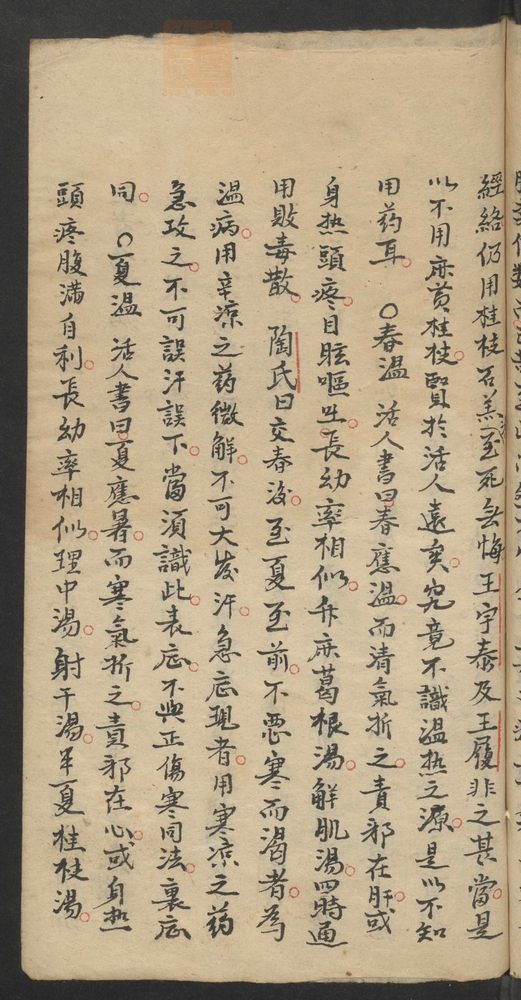 經絡仍用桂枝石羔至死無悔王宇泰及王履非之甚當是
以不用麻黄桂枝賢於活人遠矣究竟不識温热之源是以不知
用药耳　○春温　活人書曰春應温而清氣折之責邪在肝或
身热頭疼目眩嘔吐長幼率相似升麻葛根湯解肌湯四時通
用敗毒散　陶氏曰交春後至夏至前不恶寒而渴者為
温病用辛凉之药微解不可大发汗急症現者用寒凉之药
急攻之不可誤汗誤下當須識此表症不與正傷寒同法裏症
同　○夏温　活人書曰夏應暑而寒氣折之責邪在心或身热
頭疼腹滿自利長幼率相似理中湯射干湯半夏桂枝湯